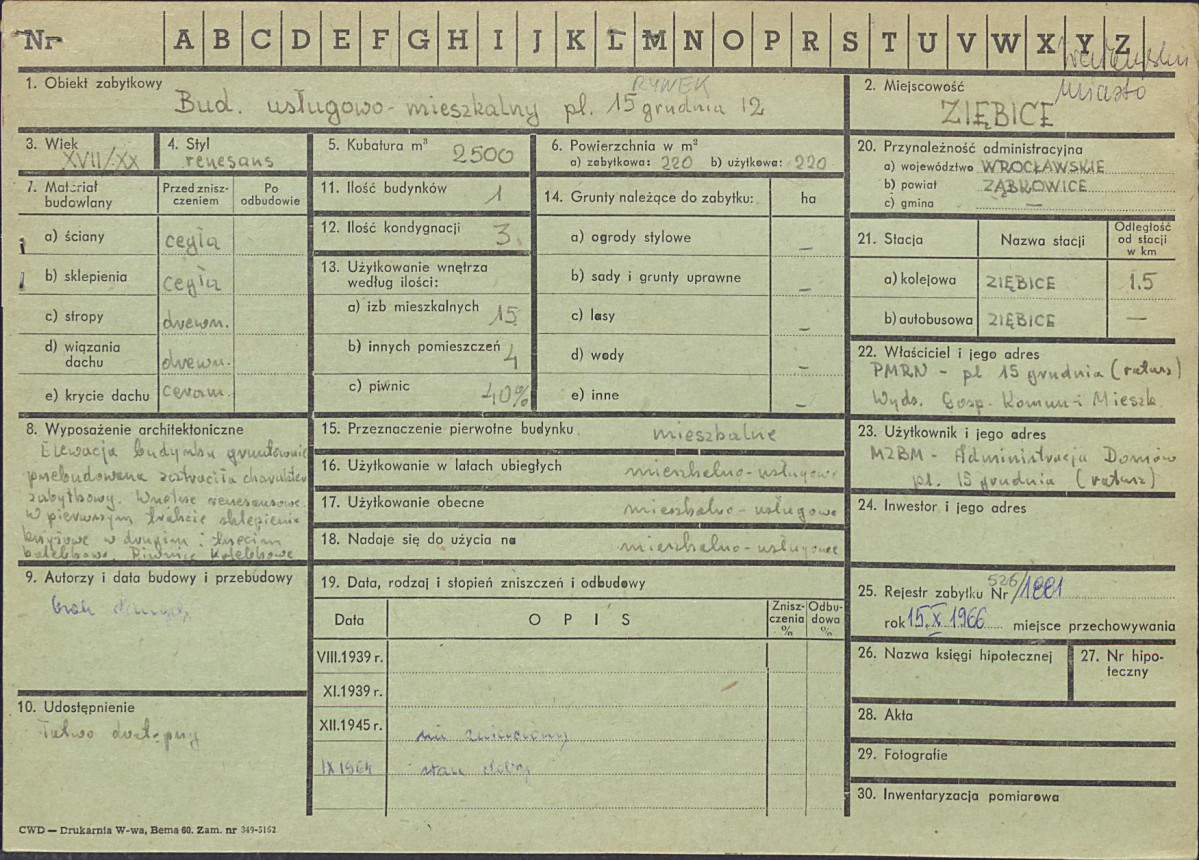 Nr A B C D E F G H I J K Ł M N O P R S T U V W X Y Z
miasto
1. Obiekt zabytkowy
RYNEK
Bud. usługowo-mieszkalny pl. 15 grudnia 12
2. Miejscowość
ZIĘBICE
3. Wiek
XVII/XX
4. Styl
renesans
5. Kubatura m³ 2500
6. Powierzchnia w m²
a) zabytkowa: 220 b) użytkowa: 220
20. Przynależność administracyjna
a) województwo WROCŁAWSKIE
b) powiat ZĄBKOWICE
c) gmina —
7. Materiał budowlany
Przed zniszczeniem
Po odbudowie
a) ściany cegła
b) sklepienia cegła
c) stropy drewn.
d) wiązania dachu drewn.
e) krycie dachu ceram.
11. Ilość budynków 1
12. Ilość kondygnacji 3.
13. Użytkowanie wnętrza
według ilości:
a) izb mieszkalnych 15
b) innych pomieszczeń 4
c) piwnic 40%
14. Grunty należące do zabytku: ha
a) ogrody stylowe —
b) sady i grunty uprawne —
c) lasy —
d) wody —
e) inne —
21. Stacja Nazwa stacji Odległość od stacji w km
a) kolejowa ZIĘBICE 1.5
b) autobusowa ZIĘBICE —
22. Właściciel i jego adres
PMRN - pl 15 grudnia (ratusz)
Wydz. Gosp. Komun i Mieszk
8. Wyposażenie architektoniczne
Elewacja budynku gruntownie
przebudowana zatraciła charakter
zabytkowy. Wnętrze renesansowe.
W pierwszym trakcie sklepienie
krzyżowe w drugim i trzecim
kolebkowe. Piwnice kolebkowe
15. Przeznaczenie pierwotne budynku mieszkalne
16. Użytkowanie w latach ubiegłych mieszkalno-usługowe
17. Użytkowanie obecne mieszkalno-usługowe
18. Nadaje się do użycia na mieszkalno-usługowe
23. Użytkownik i jego adres
MZBM - Administracja Domów
pl. 15 grudnia (ratusz)
24. Inwestor i jego adres
9. Autorzy i data budowy i przebudowy
brak danych
10. Udostępnienie
Łatwo dostępny
19. Data, rodzaj i stopień zniszczeń i odbudowy
Data OPIS Zniszczenia % Odbudowa %
VIII.1939 r.
XI.1939 r.
XII.1945 r. nie zniszczony
IX 1964 stan dobry
25. Rejestr zabytku Nr 526/1881
rok 15.X 1966 miejsce przechowywania
26. Nazwa księgi hipotecznej
27. Nr hipoteczny
28. Akta
29. Fotografie
30. Inwentaryzacja pomiarowa
CWD — Drukarnia W-wa, Bema 60. Zam. nr 349-5162